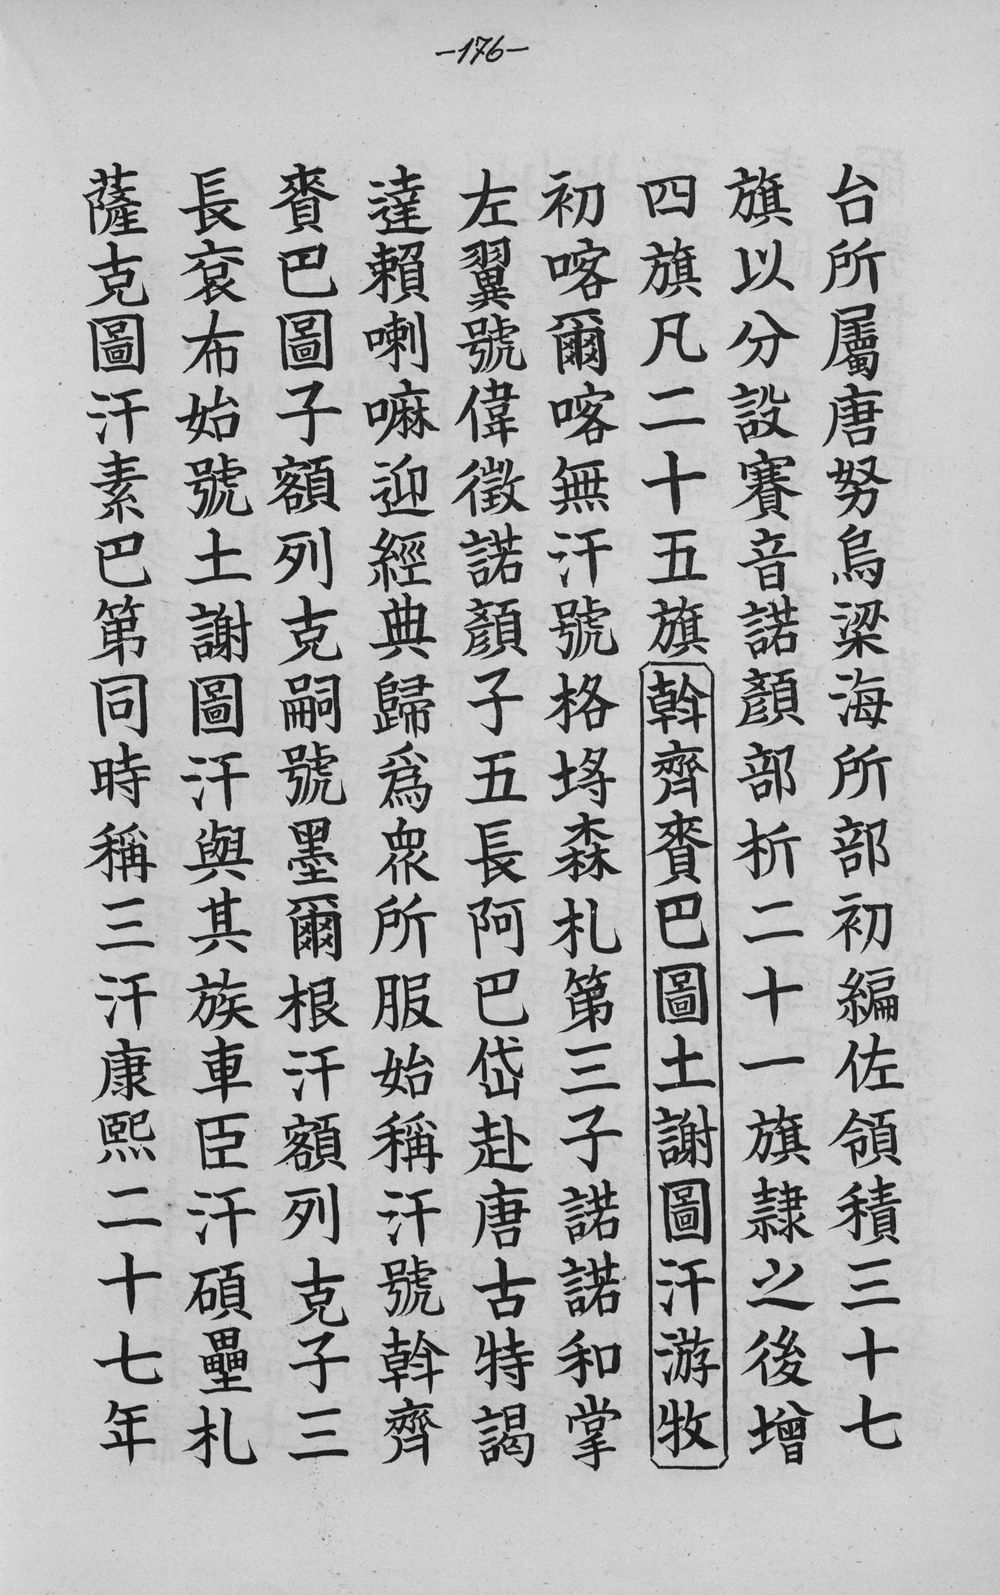 —176—
台所屬唐努烏梁海所部初編佐領積三十七
旗以分設賽音諾顏部析二十一旗隷之後增
四旗凡二十五旗斡齊賚巴圖土謝圖汗游牧
初喀爾喀無汗號格埓森札第三子諾諾和掌
左翼號偉徵諾顏子五長阿巴岱赴唐古特謁
達賴喇嘛迎經典歸爲衆所服始稱汗號斡齊
賚巴圖子額列克嗣號墨爾根汗額列克子三
長袞布始號土謝圖汗與其族車臣汗碩壘札
薩克圖汗素巴第同時稱三汗康熙二十七年